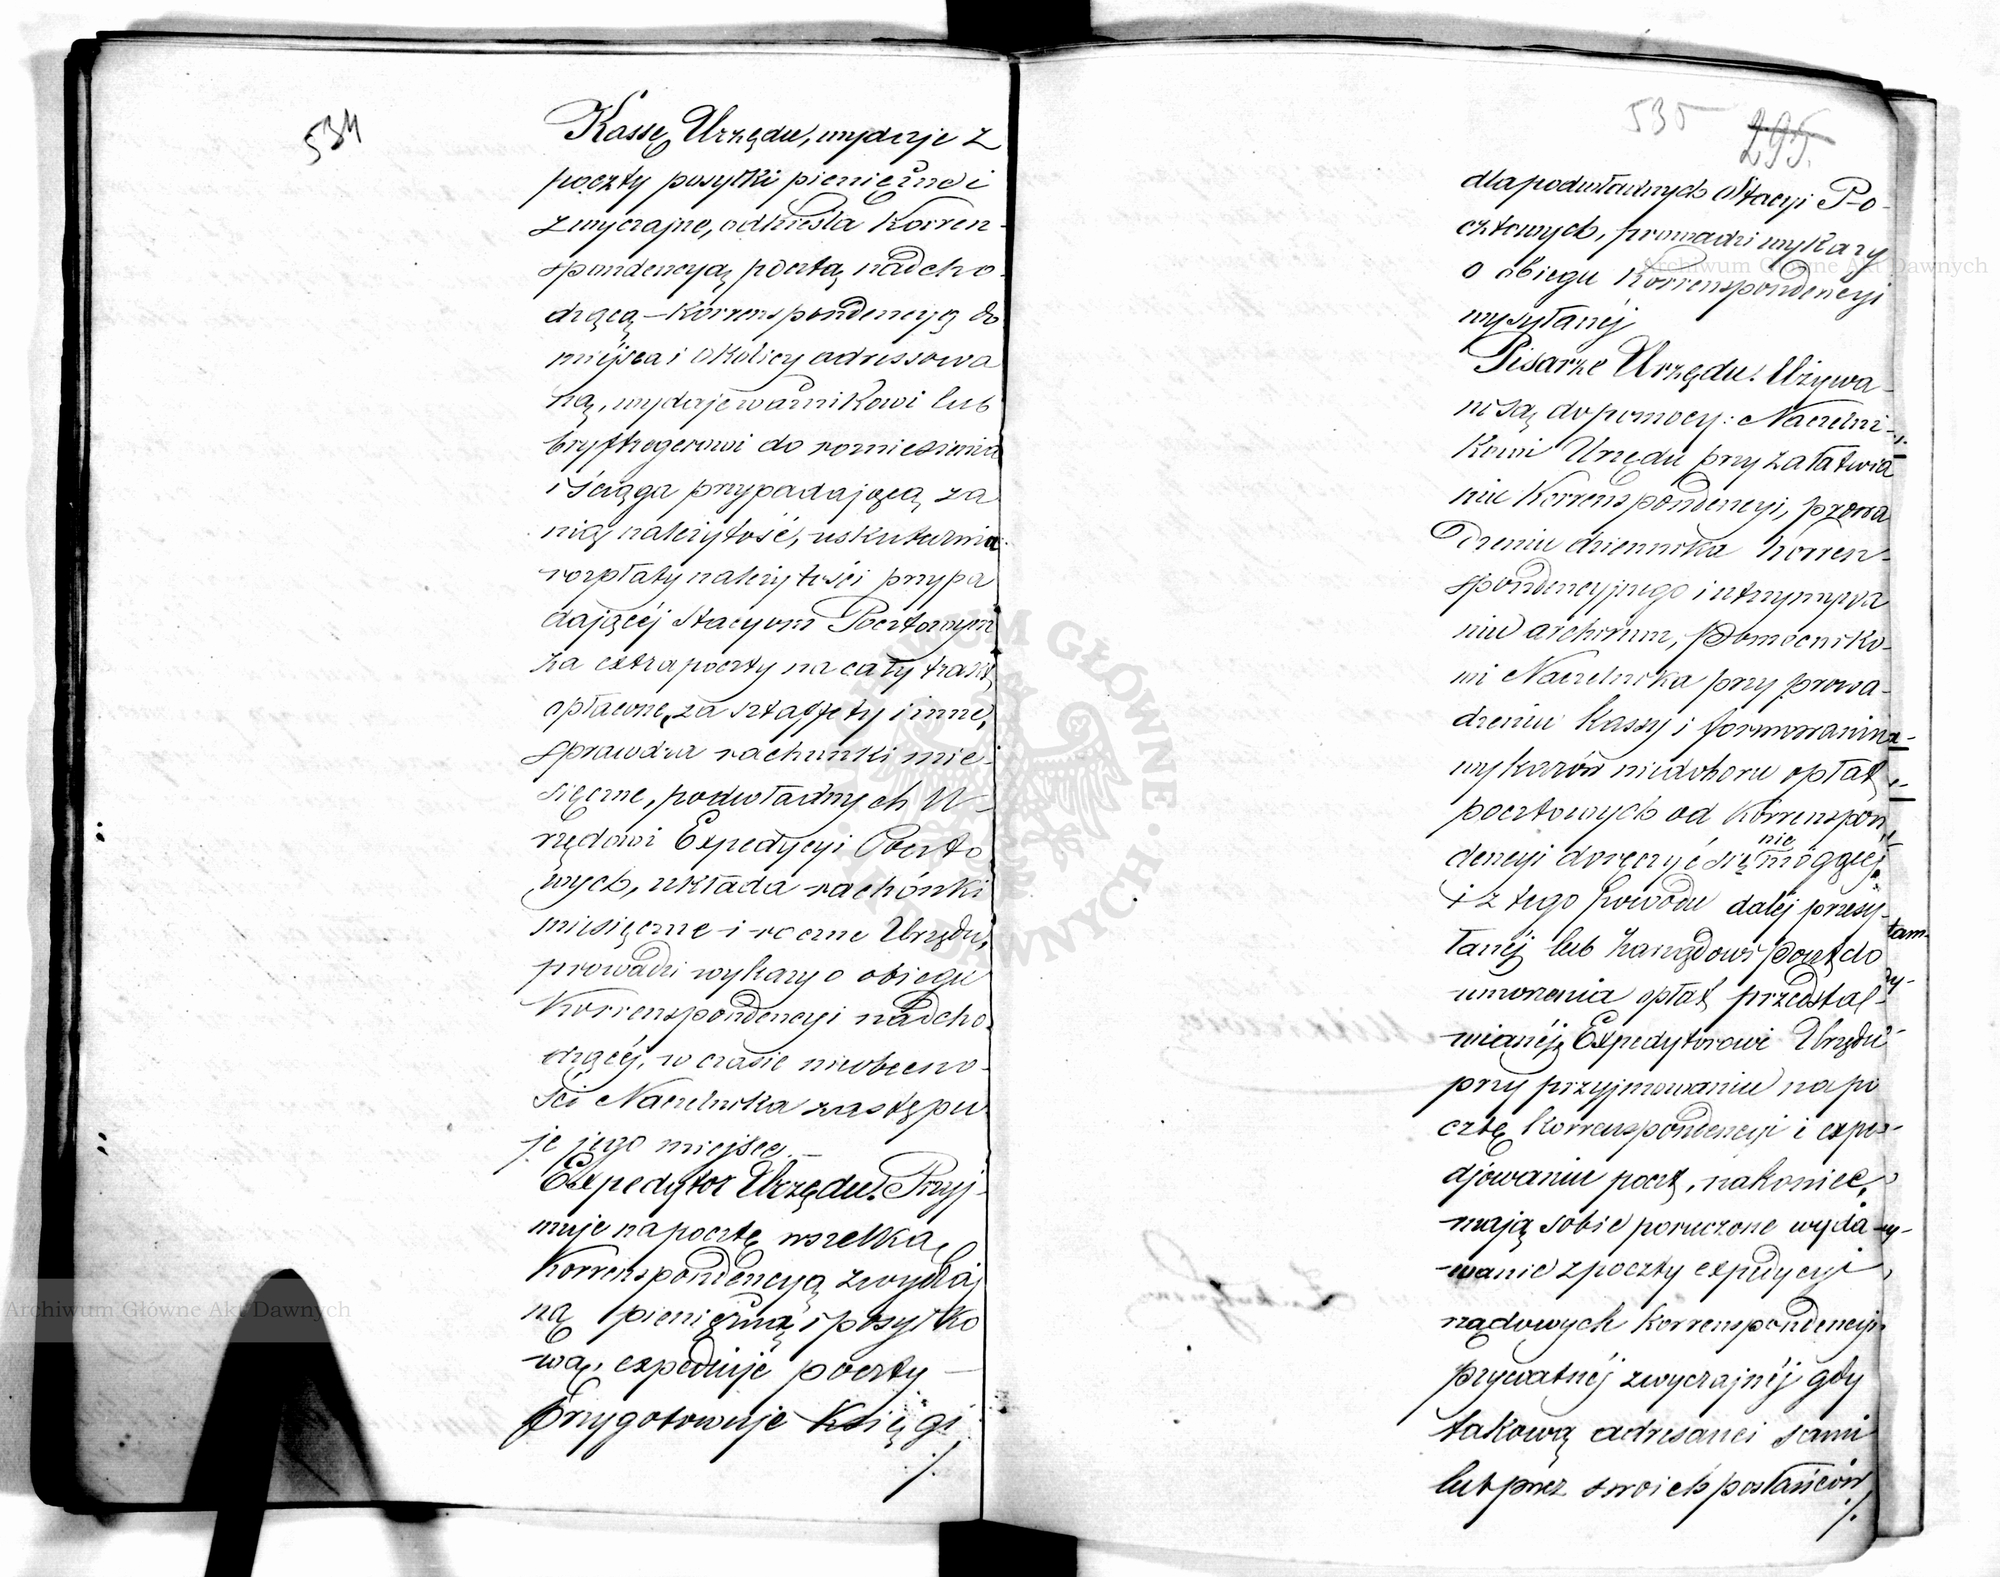 534
Kassę Urzędu, wydaje z
poczty posyłki pieniężne i
zwyczajne, odkreśla Korren-
spondencyą pocztą nadcho-
dzącą – Korrenspondencyą do
miejsca i okolicy adressowa
ną, wydaje warnikowi lub
bryftregerowi do rozniesienia
i ściąga przypadającą za
nią należytość, uskutecznia
rozpłaty należytości przypa
dającéj Stacyom Pocztowym
za extrapoczty na cały trakt
opłacone, za sztaffety i inne,
sprawdza rachunki mie-
sięczne, podwładnych U-
rzędowi Expedycyi Poczto
wych, układa rachónki
miesięczne i roczne Urzędu,
prowadzi wykazy o obiegu
Korrenspondencyi nadcho-
dzącéj, w czasie nieobecno-
ści Naczelnika zastępu
je jego miejsce. –
Expedytor Urzędu. Przyj-
muje na pocztę wszelką
Korrenspondencyą zwyczaj
ną pieniężną i posyłko
wą, expedjuje poczty –
Przygotowuje Księgi
./.
535
295.
dla podwładnych Stacyi Po-
cztowych, prowadzi wykazy
o obiegu Korrenspondencyi
wysyłanéj
Pisarze Urzędu. Używa-
ni są do pomocy: Naczelni-
kowi Urzędu przy załatwia
niu Korrenspondencyi, prowa
dzeniu dziennika Korren-
spondencyjnego i utrzymywa
niu archiwum, Pomocniko-
wi Naczelnika przy prowa-
dzeniu Kassy i formowaniu
wykazów niedoboru opłat
pocztowych od Korrenspon
dencyi doręczyć się nie mogącéj
i z tego powodu daléj przesy-
łanéj lub Zarządowi Poczt do
umorzenia opłat przedsta-
wianéj, Expedytorowi Urzędu
przy przyjmowaniu na po
cztę Korrenspondencyi i expe-
djowaniu poczt, nakoniec,
mają sobie poruczone wyda-
wanie z poczty expedycyi
rządowych Korrenspondencyi
prywatnéj zwyczajnéj gdy
takową adresanci sami
lub przez swoich posłańców
./.
tam-
Archiwum Główne Akt Dawnych
Archiwum Główne Akt Dawnych
ARCHIWUM GŁÓWNE AKT DAWNYCH